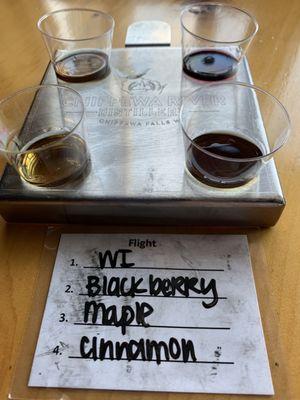 CHIPPEWA RIVER
DISTILLERY
CHIPPEWA FALLS W
Flight
1. WI
2. Blackberry
3. maple
4. cinnamon